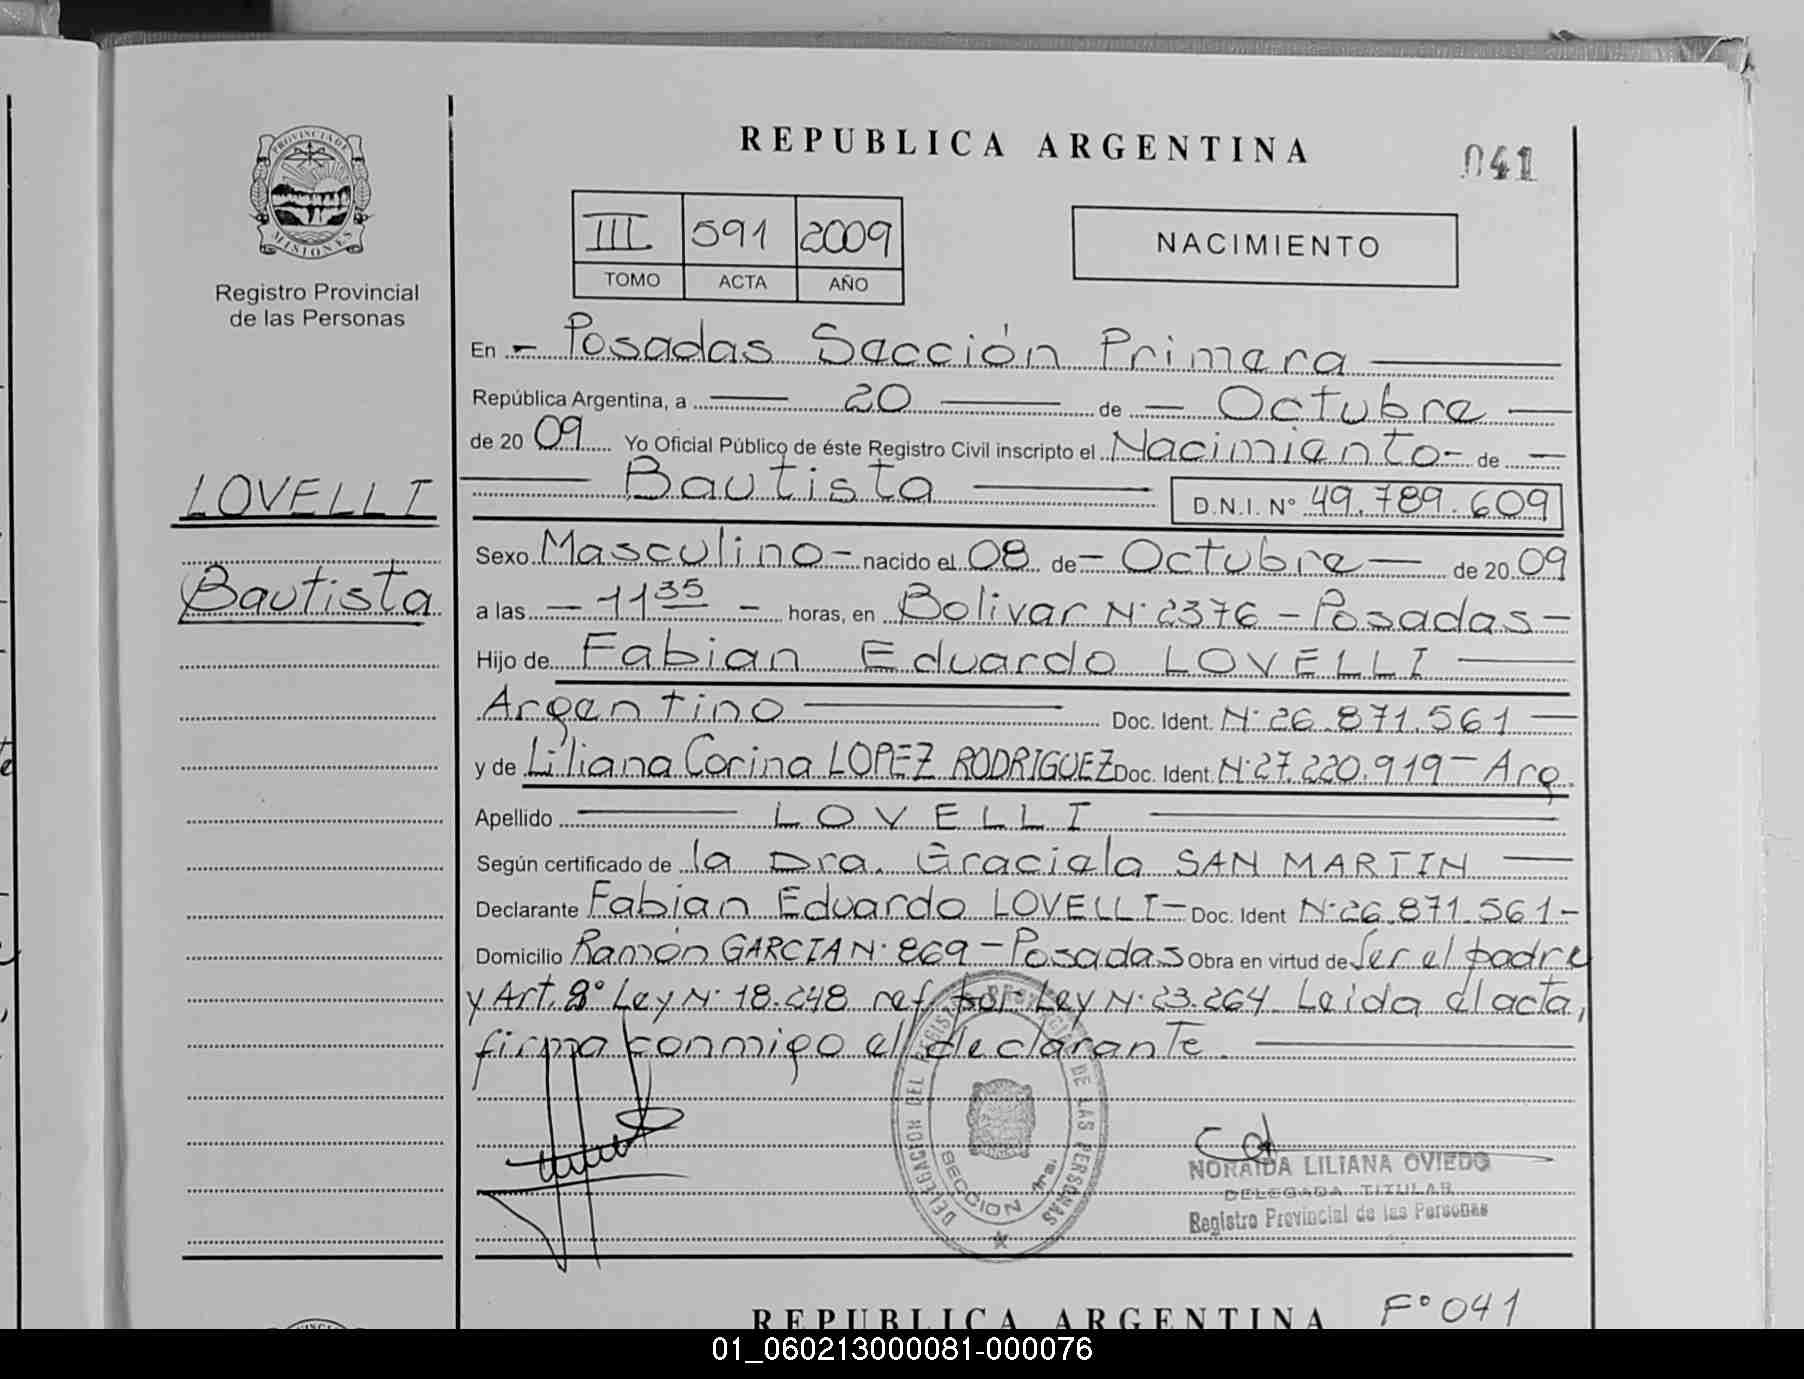 PROVINCIA DE
MISIONES
Registro Provincial
de las Personas
LOVELLI
Bautista
REPUBLICA ARGENTINA
041
III 591 2009
TOMO ACTA AÑO
NACIMIENTO
En - Posadas Sección Primera
República Argentina, a 20 de Octubre
de 20 09 Yo Oficial Público de éste Registro Civil inscripto el Nacimiento - de
Bautista D.N.I. Nº 49.789.609
Sexo Masculino - nacido el 08 de - Octubre de 20 09
a las - 11 35 - horas, en Bolivar Nº 2376 - Posadas -
Hijo de Fabian Eduardo LOVELLI
Argentino Doc. Ident. Nº 26.871.561
y de Liliana Corina LOPEZ RODRIGUEZ Doc. Ident. Nº 27.220.919 - Arg.
Apellido LOVELLI
Según certificado de la Dra. Graciela SAN MARTIN
Declarante Fabian Eduardo LOVELLI - Doc. Ident Nº 26.871.561 -
Domicilio Ramón GARCIA Nº 869 - Posadas Obra en virtud de Ser el padre
y Art. 8º Ley Nº 18.248 ref. por Ley Nº 23.264. Leida el acta,
firma conmigo el declarante.
DELEGACION DEL REGISTRO PROVINCIAL DE LAS PERSONAS
SECCION 1ra.
NORAIDA LILIANA OVIEDO
DELEGADA TITULAR
Registro Provincial de las Personas
REPUBLICA ARGENTINA
Fº 041
01_060213000081-000076